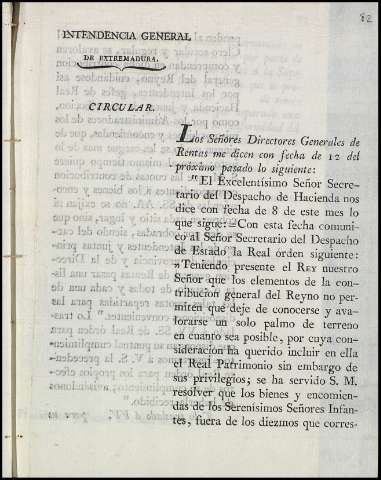 82
INTENDENCIA GENERAL
DE EXTREMADURA.
CIRCULAR.
Los Señores Directores Generales de
Rentas me dicen con fecha de 12 del
próximo pasado lo siguiente:
"El Excelentísimo Señor Secre-
tario del Despacho de Hacienda nos
dice con fecha de 8 de este mes lo
que sigue:=Con esta fecha comuni-
co al Señor Secretario del Despacho
de Estado la Real órden siguiente:
"Teniendo presente el REY nuestro
Señor que los elementos de la con-
tribucion general del Reyno no per-
miten que deje de conocerse y ava-
lorarse un solo palmo de terreno
en cuanto sea posible, por cuya con-
sideracion ha querido incluir en ella
el Real Patrimonio sin embargo de
sus privilegios; se ha servido S. M.
resolver que los bienes y encomien-
das de los Serenísimos Señores Infan-
tes, fuera de los diezmos que corres-